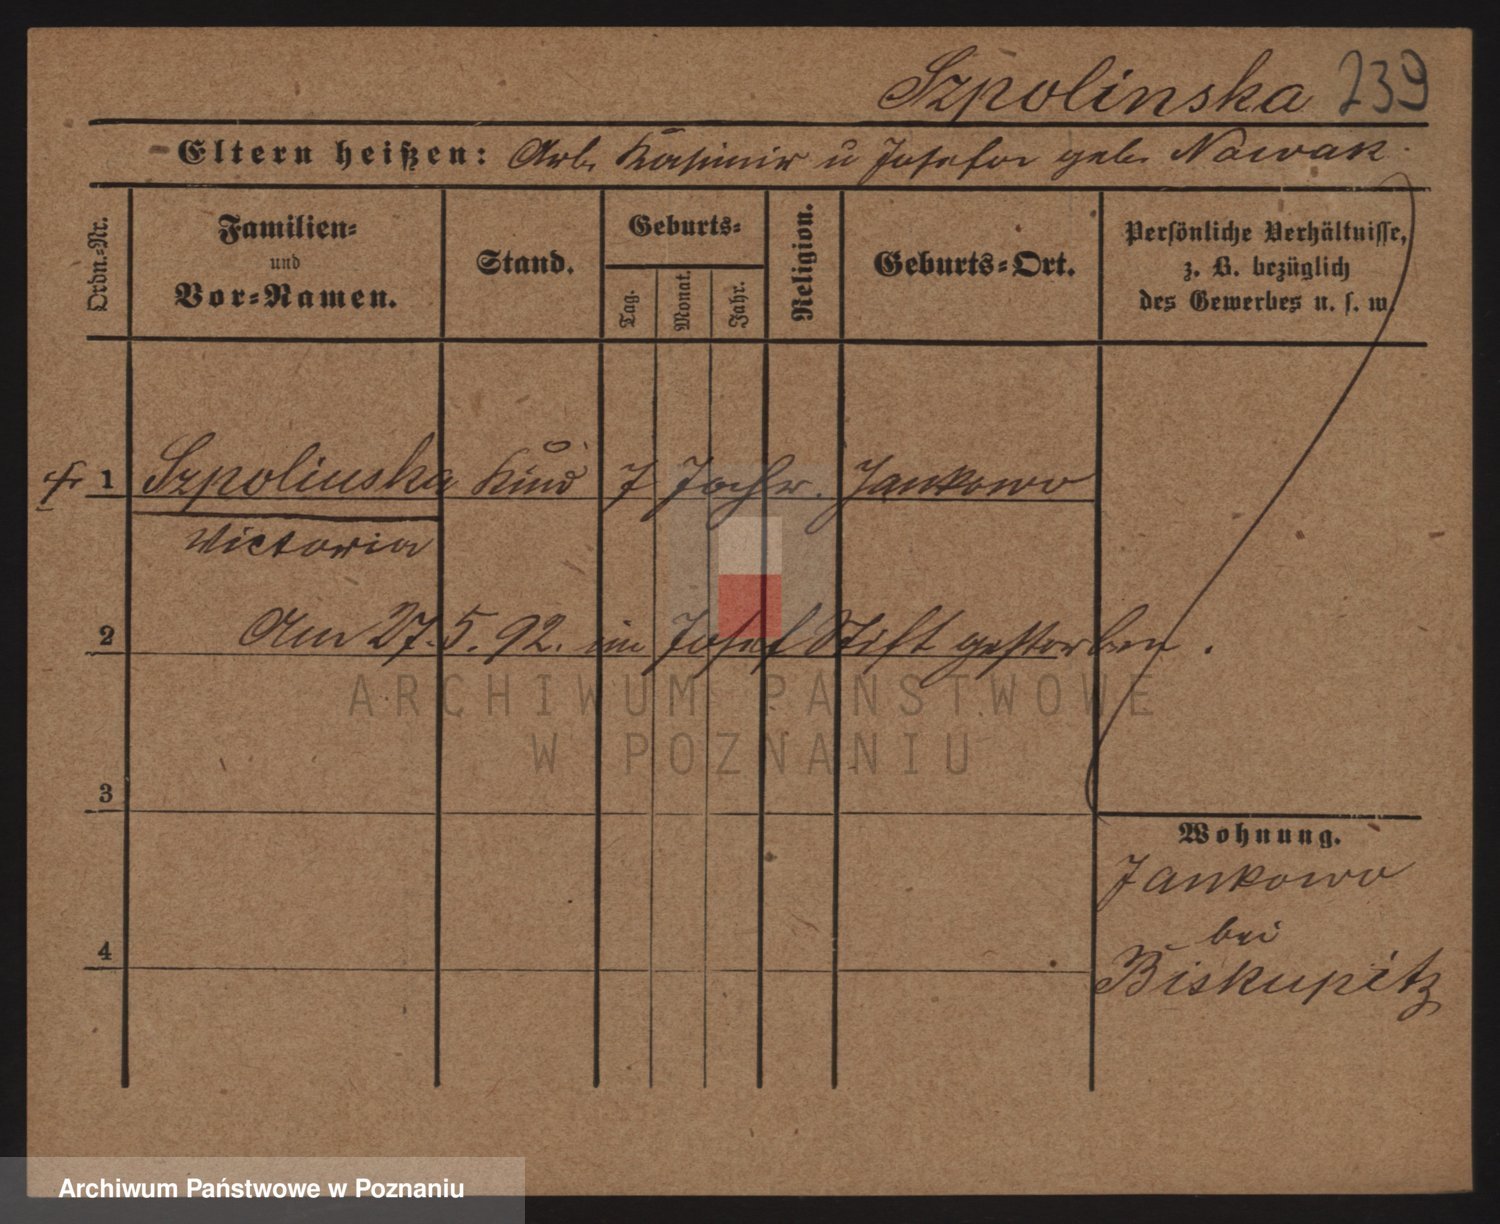 Szpolinska 239
Eltern heißen: Arb. Kasimir u Josefa geb. Nowak.
Ordn.-Nr.
Familien-
und
Vor-Namen.
Stand.
Geburts-
Tag.
Monat.
Jahr.
Religion.
Geburts-Ort.
Persönliche Verhältnisse,
z. B. bezüglich
des Gewerbes u. s. w.
1 Szpolinska Kind 7 Jahr. Jankowo
Victoria
2 Am 27.5.92. im Josef Stift gestorben.
ARCHIWUM PAŃSTWOWE
W POZNANIU
3
Wohnung.
Jankowo
bei
4
Biskupitz
Archiwum Państwowe w Poznaniu